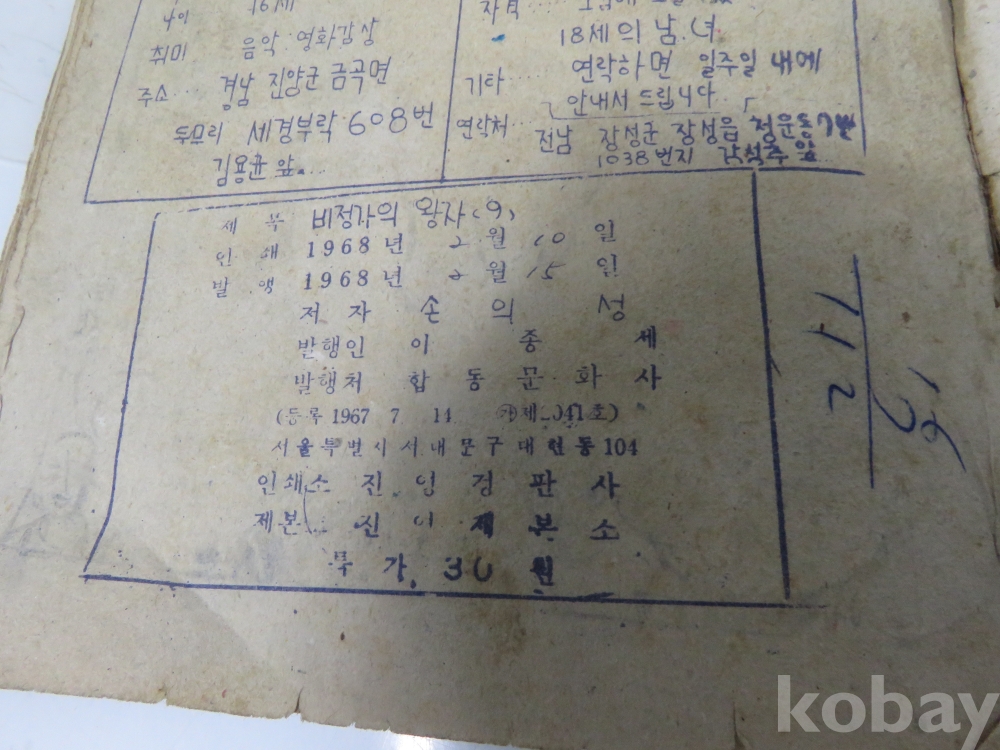 나이 16세
취미 음악·영화감상
주소... 경남 진양군 금곡면
두므리 세경부락 608번
김용균 앞...
자격...
18세의 남.녀
기타... 연락하면 일주일 내에
안내서 드립니다...
연락처 전남 장성군 장성읍
1038번지
제목 비정가의 왕자(9)
인쇄 1968년 2월 10일
발행 1968년 2월 15일
저자 손의성
발행인 이종세
발행처 합동문화사
(등록 1967 7. 14 ㉮제1041호)
서울특별시서대문구대현동104
인쇄소 진영경판사
제본... 제본소
가. 30원
112
kobay